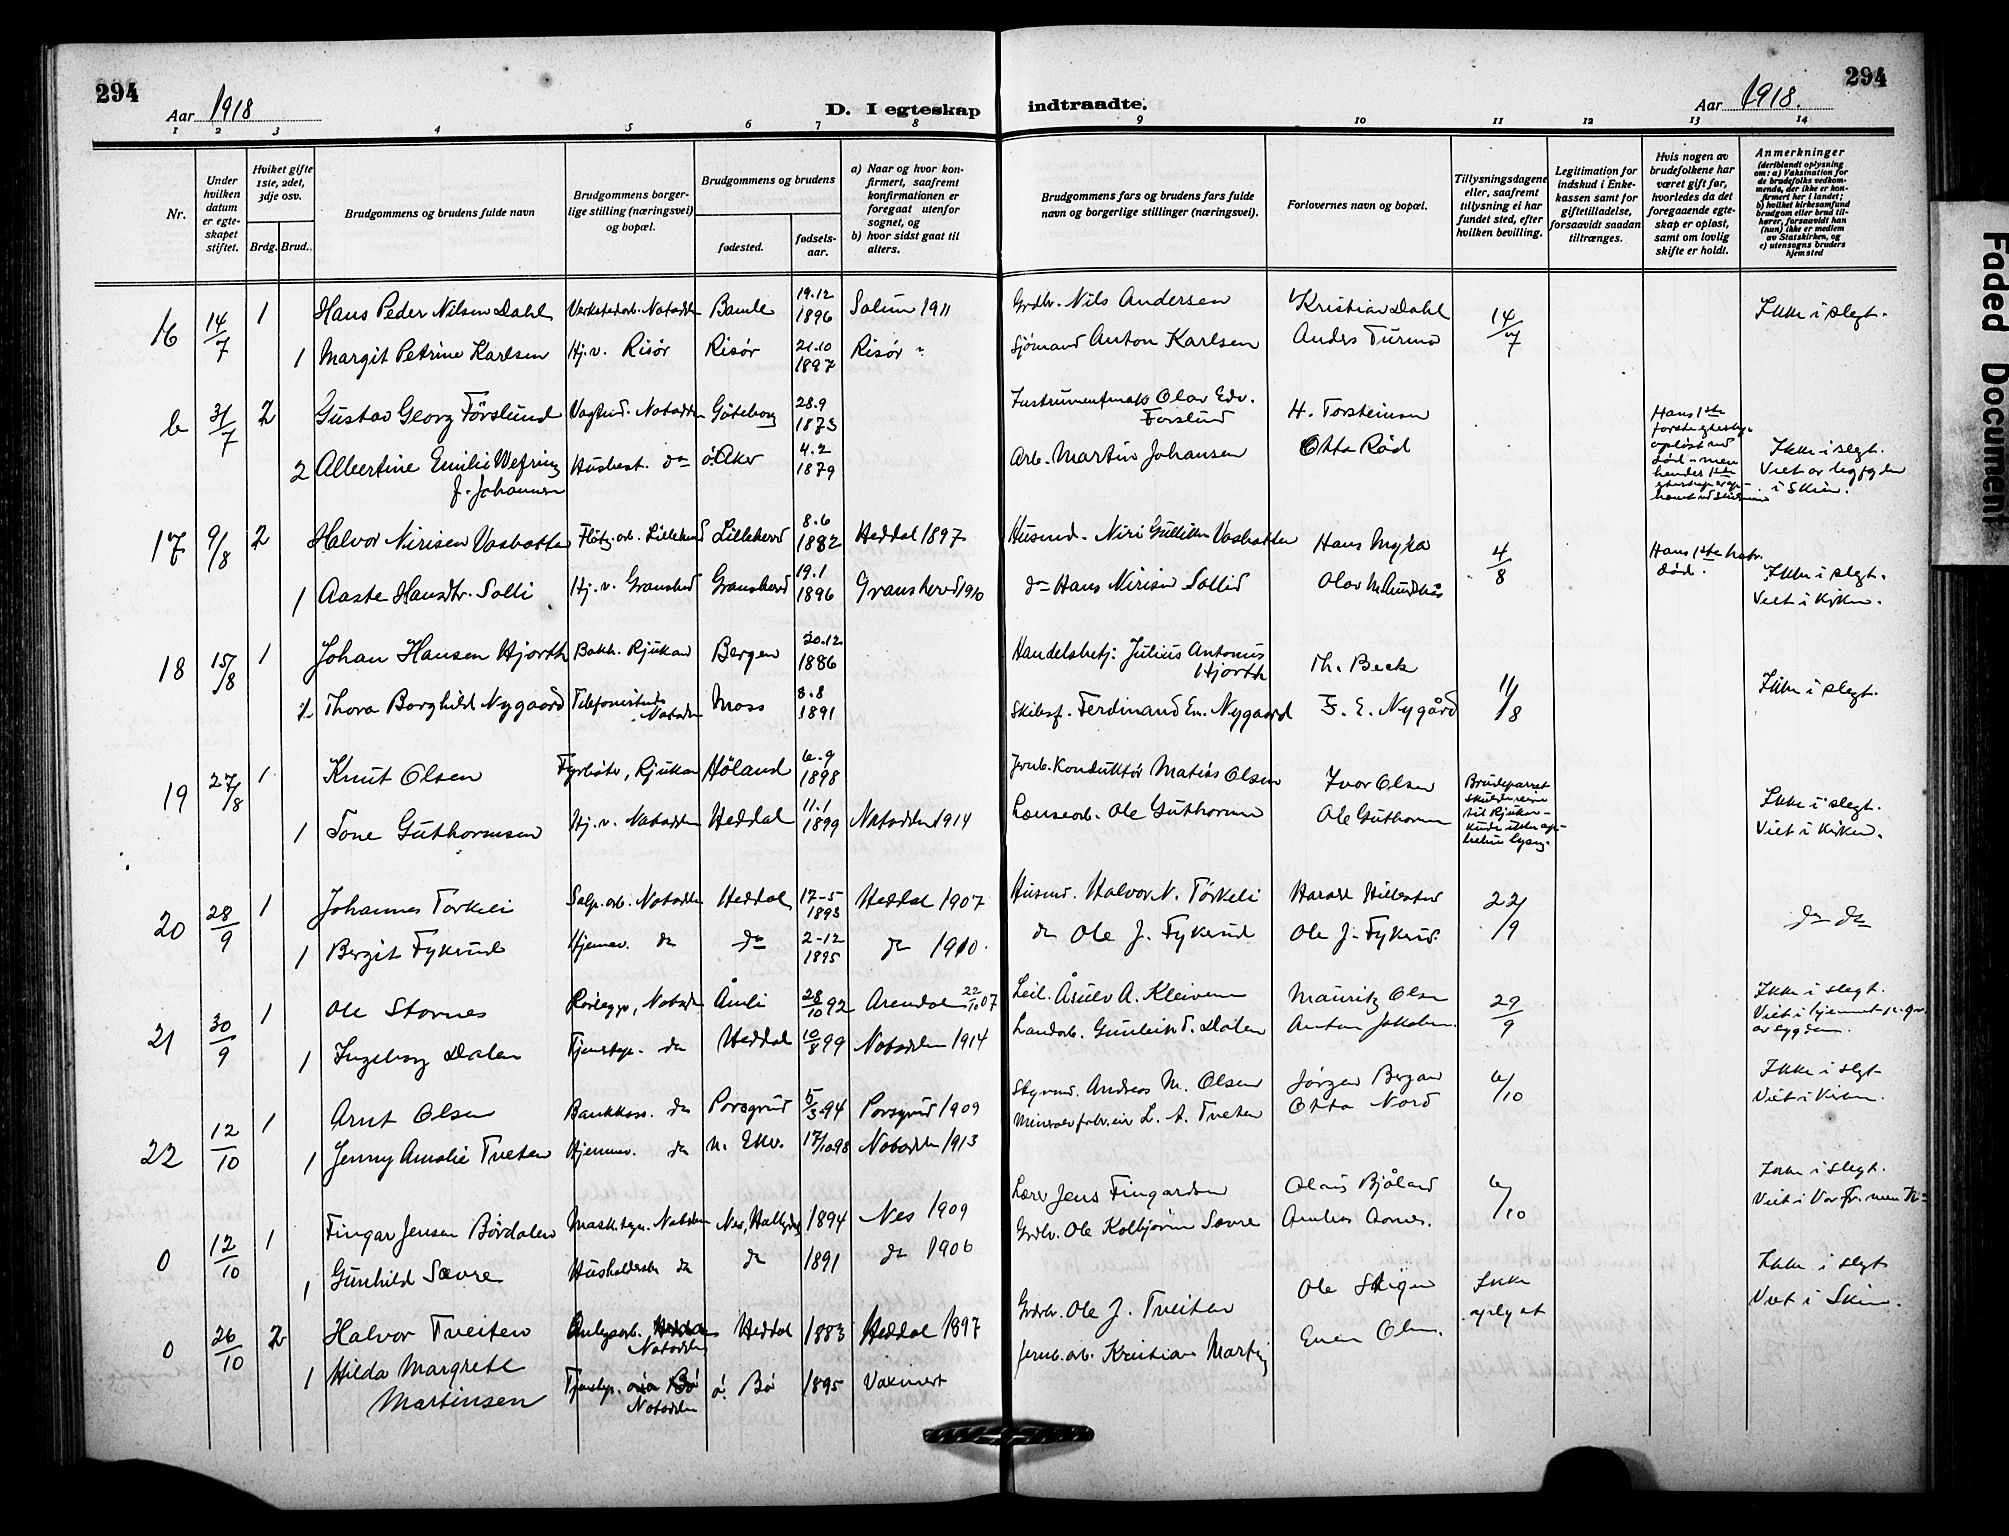 294
Aar 1918
D. I egteskap
indtraadte.
Aar 1918.
294
1 2 3 4 5 6 7 8 9 10 11 12 13 14
Nr.
Under hvilken datum er egteskapet stiftet.
Hviket gifte 1ste, 2det, 3dje osv.
Brdg. Brud.
Brudgommens og brudens fulde navn
Brudgommens borgerlige stilling (næringsvei) og bopæl.
Brudgommens og brudens
fødested.
fødselsaar.
a) Naar og hvor konfirmert, saafremt konfirmationen er foregaat utenfor sognet, og
b) hvor sidst gaat til alters.
Brudgommens fars og brudens fars fulde navn og borgerlige stillinger (næringsvei).
Forlovernes navn og bopæl.
Tillysningsdagene eller, saafremt tillysning ei har fundet sted, efter hvilken bevilling.
Legitimation for indskud i Enkekassen samt for giftetilladelse, forsaavidt saadan tiltrænges.
Hvis nogen av brudefolkene har været gift før, hvorledes da det foregaaende egteskap er opløst, samt om lovlig skifte er holdt.
Anmerkninger (deriblandt oplysning om: a) Vaksination for de brudefolks vedkommende, der ikke er konfirmert her i landet; b) hvilket kirkesamfund brudgom eller brud tilhører, forsaavidt han (hun) ikke er medlem av Statskirken, og c) utensogns bruders hjemsted
16 14/7 1 Hans Peder Nilsen Dahl Verkstedarb. Notodden Bamle 19.12 1896 Solum 1911 Grdbr. Nils Andersen Kristian Dahl 14/7 Ikke i slegt.
1 Margit Petrine Karlsen Hj.v. Risør Risør 21.10 1897 Risør Sjømand Anton Karlsen Anders
b 31/7 2 Gustav Georg Förslund Notodden Göteborg 28.9 1873 Instrumentmak. Olav Edv. Forslund H. Torsteinsen Hans 1ste
2 Albertine Emilie Wefring f. Johansen Husbest. do ö. Aker 4.2 1879 Arb. Martin Johansen Otto Rød Ikke i slegt. Viet av byfogden i Skien.
17 9/8 2 Halvor Nirisen Vasbotten Fløtn.arb. Lilleherad Lilleherad 8.6 1882 Heddal 1897 Husmd. Niri Gulliksen Vasbotten Hans Myka 4/8 Hans 1ste hstr. død.
1 Aaste Hansdtr. Solli Hj.v. Gransherad Gransherad 19.1 1896 Gransherad 1910 do Hans Nirisen Sollid Olav Ikke i slegt. Viet i kirken.
18 15/8 1 Johan Hansen Hjorth Bokh. Rjukan Bergen 30.12 1886 Handelsbetj. Julius Antonius Hjorth Th. Beck 11/8 Ikke i slegt.
1 Thora Borghild Nygaard Telefonistinde Notodden Moss 8.8 1891 Skibsf. Ferdinand Em. Nygaard F. E. Nygård
19 27/8 1 Knut Olsen Fyrbøter, Rjukan Høland 6.9 1898 Jernb.konduktör Matias Olsen Ivar Olsen Brudeparret skulde reise til Rjukan
1 Tone Guthormsen Hj.v. Notodden Heddal 11.1 1899 Notodden 1914 Lænsearb. Ole Guthormsen Ole Guthormsen Ikke i slegt. Viet i kirken.
20 28/9 1 Johannes Torkeli Salp.arb. Notodden Heddal 17-5 1893 Heddal 1907 Husmd. Halvor N. Törkeli Harald Hillestad 22/9 do do
1 Bergit Fykerud Hjemmev. do do 2-12 1895 do 1910. do Ole J. Fykerud Ole J. Fykerud.
21 30/9 1 Ole Stornes Rørlegger, Notodden Åmli 28/10 92 Arendal 22/10 07 Leil. Åsulv A. Kleiven Mauritz Olsen 29/9 Ikke i slegt. Viet i hjemmet
1 Ingeborg Dalen Tjenestep. do Heddal 10/8 99 Notodden 1914 Landarb. Gunleik T. Dalen Anton Jakobsen.
22 12/10 1 Arnt Olsen Bankkass. do Porsgrund 5/3 94 Porsgrund 1909 Styrmd. Andreas M. Olsen Jørgen Bergan 6/10 Ikke i slegt. Viet i kirken.
1 Jenny Amalie Tveten Hjemmev. do N. Eker. 17/10 98 Notodden 1913 L. A. Tveten Otto Nord
0 12/10 1 Fingar Jensen Børdalen Mask.tegn. Notodden Nes, Hallingdal 1894 Nes 1909 Lærer Jens Fingardsen Olaus Bjåland 6/10 Ikke i slegt. Viet i Vor Fr.
1 Gunhild Sævre Husholderske do do 1891 do 1906 Grdbr. Ole Kolbjørnsen Sævre Anders
0 26/10 2 Halvor Tveiten Anlegsarb. Notodden Heddal 1883 Heddal 1897 Grdbr. Ole J. Tveiten Ole Ikke oplyst Ikke i slegt Viet i Skien.
1 Hilda Margrete Martinsen Tjenestep. Notodden ö. Bø 1895 Voxnert Jernb.arb. Kristian Even Olsen.
Faded Document